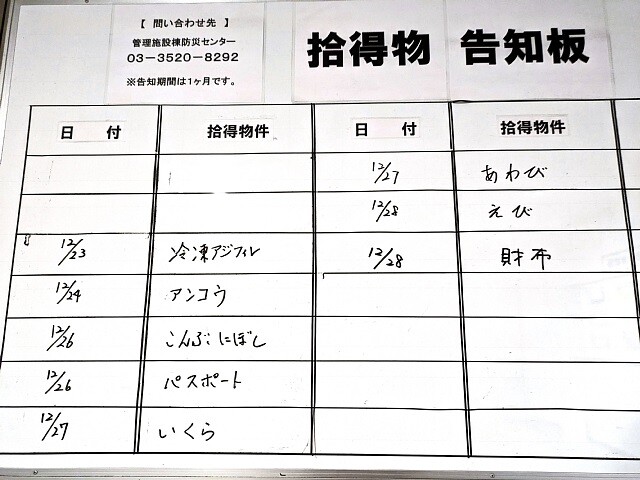 【 問い合わせ先 】
管理施設棟防災センター
03－3520－8292
※告知期間は1ヶ月です。
拾得物 告知板
日 付 拾得物件 日 付 拾得物件
12/27 あわび
12/28 えび
12/23 冷凍アジフィレ 12/28 財布
12/24 アンコウ
12/26 こんぶにぼし
12/26 パスポート
12/27 いくら